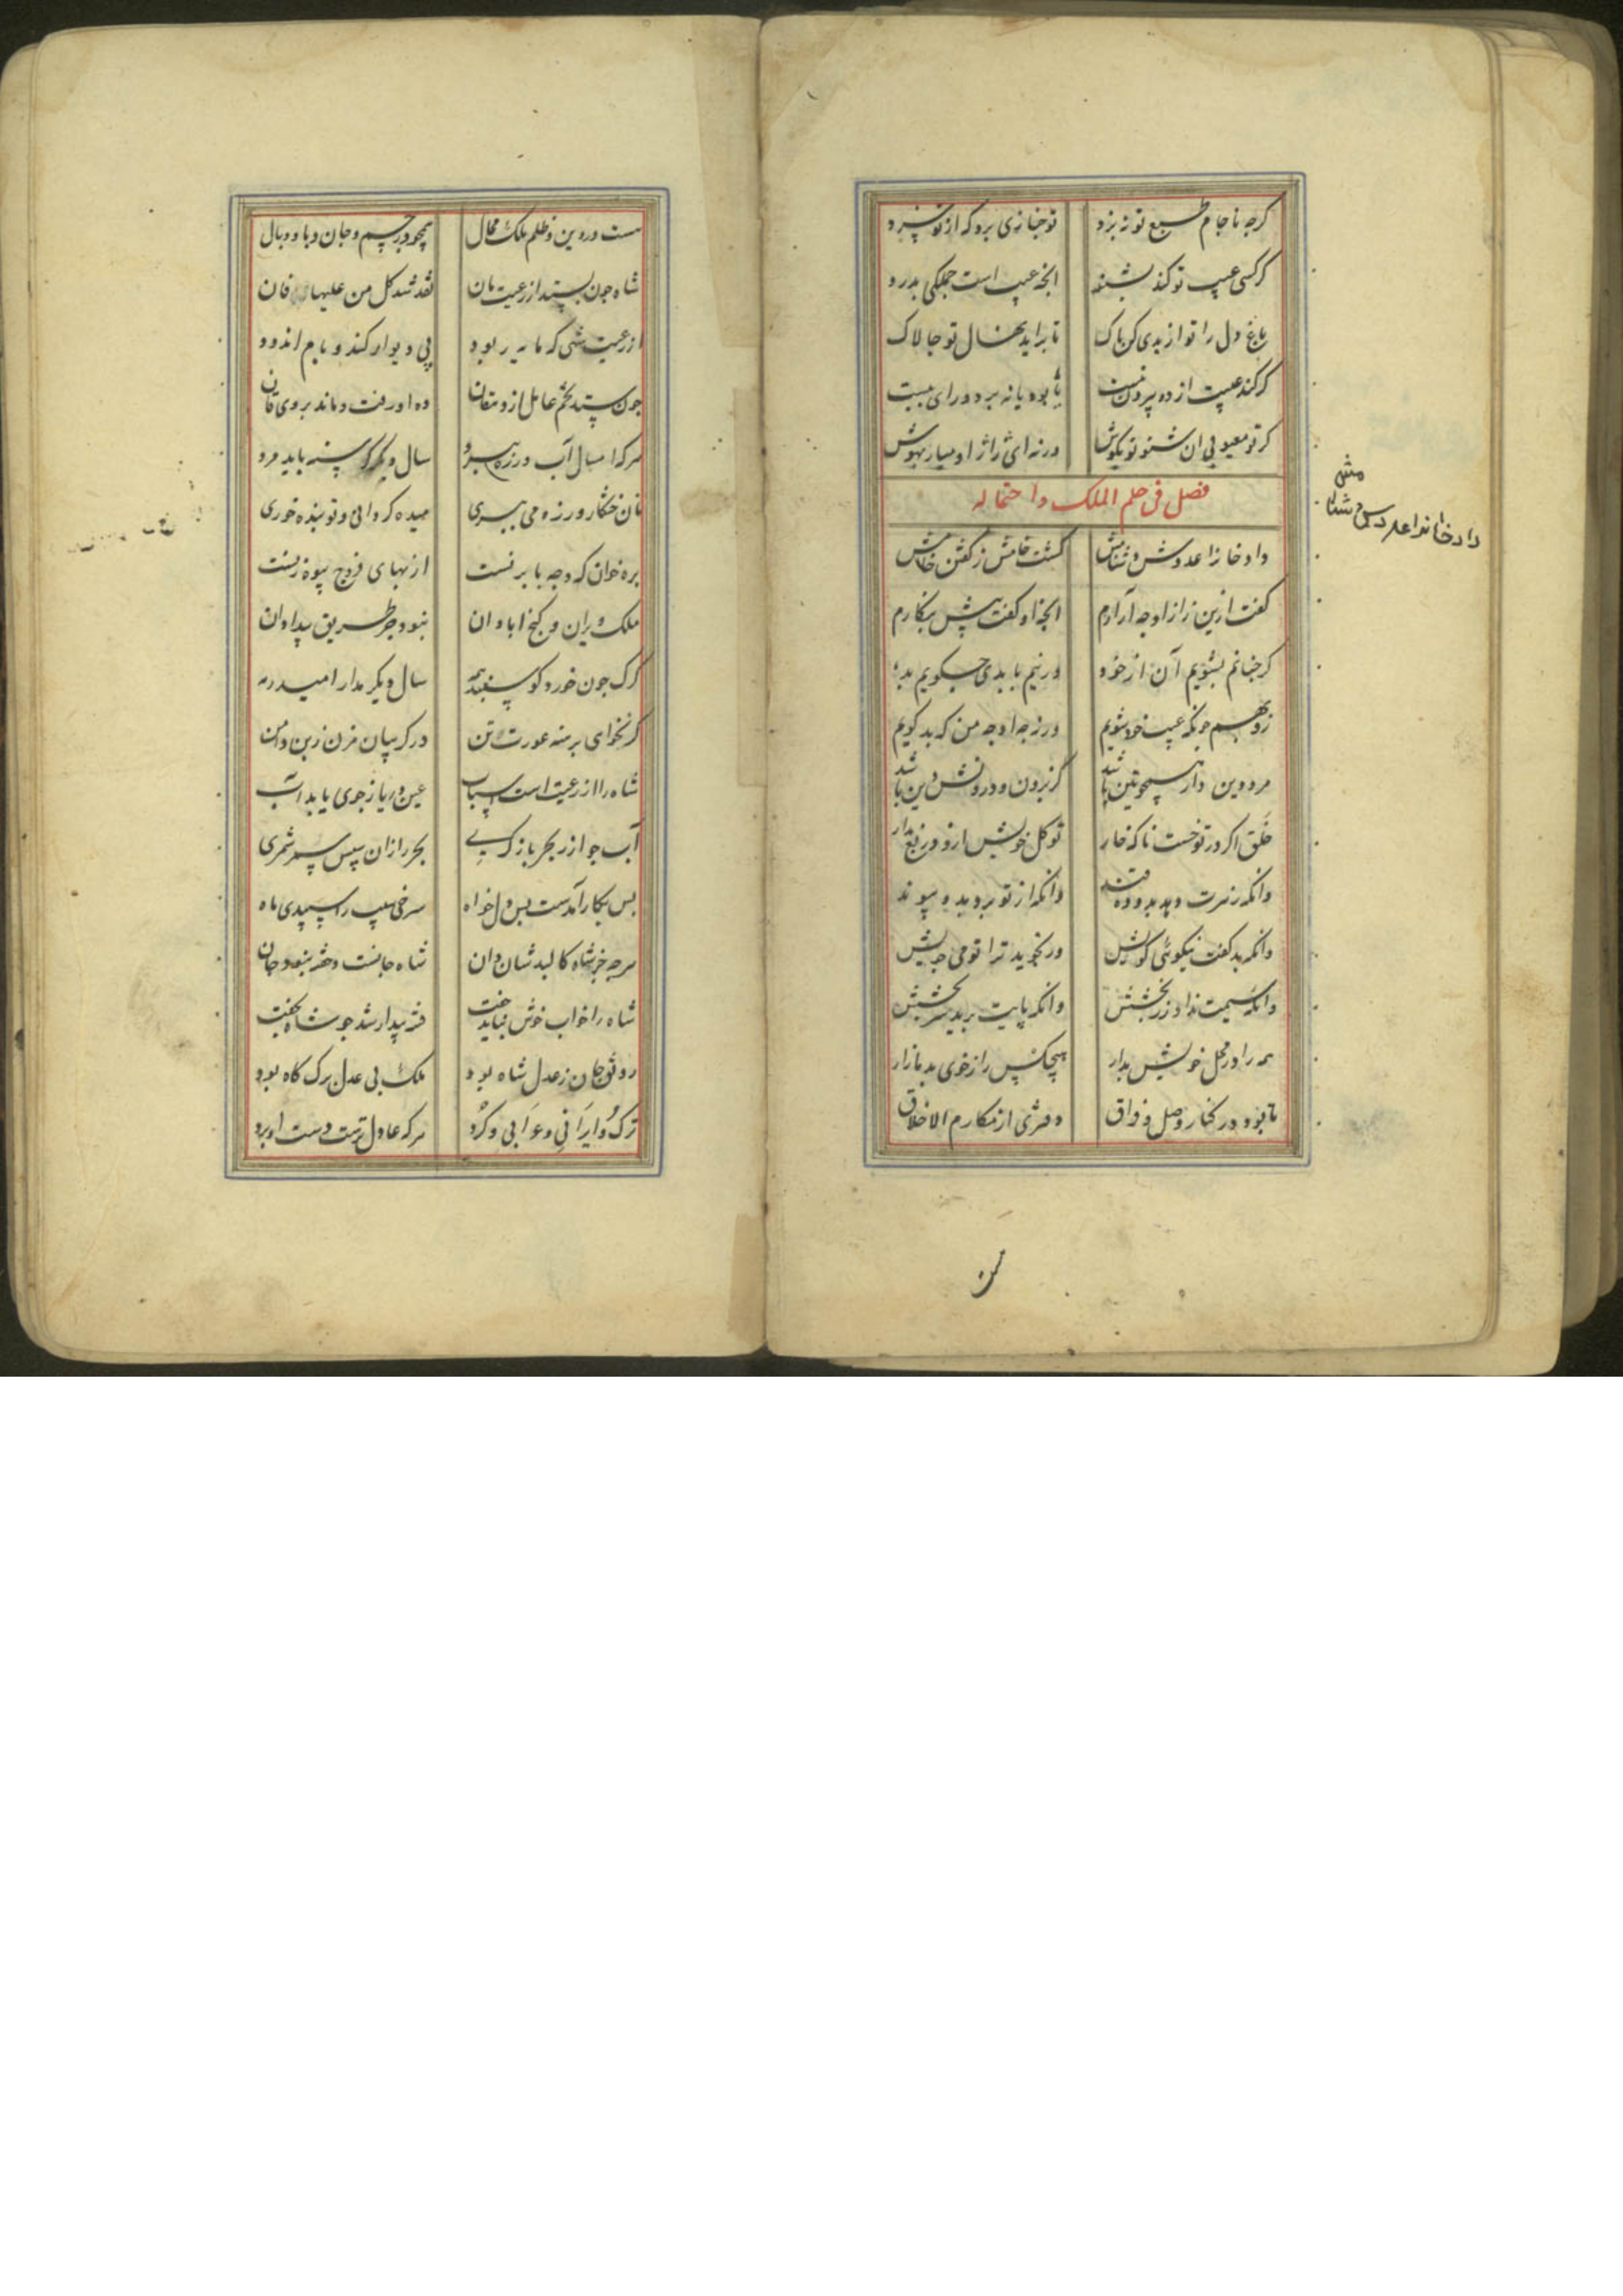 کرجه با جام طبع تو نبرد تو جنازی برد که از تو
کر کسی عیب تو کند بشنو انچه عیب است جملکی بدرود
باغ دل را تو از بدی کن پاک تا براید نهال تو جالاک
کر کند عیبت از ده بیرون نیست یا بود یا نه برد و رای بیست
کر تو معیوبی ان شنو تو بکوش ورنه ای ژاژ او میار بهوش
فصل فی حلم الملک واحتماله
گشت خامش ز کفتن خامش
کفت ازین راز او جه آرادم انچه او کفت پیش بنکارم
کر جنانم بشویم آن از خود ور نیم با بدی چکویم بد
زو بهم جونکه عیب خود شویم ورنه جه او جه من که بد کویم
مرد دین دار همچو تین باشد کز برون و درونش دین باشد
خلق اکر در تو خست ناکه خار تو کل خویش ازو دریغ مدار
وانکه زهرت دهد بدو ده قند وانکه از تو برد بدو پیوند
وانکه بد کفت نیکوئی کویش ور نجوید ترا تو می جویش
وانکه سیمت نداد زر بخشش وانکه پایت برید سر بخشش
همه را در محل خویش بدار هیچکس را ز خوی بد مازار
تا بود در کنار وصل و فراق دفتری از مکارم الاخلاق
هست در دین و ظلم ملک محال همچو در جسم و جان وبا و وبال
شاه جون بستد از رعیت نان نقد شد کل من علیها فان
از رعیت شهی که مایه ربود پی دیوار کند و بام اندود
جون ستد تخم عامل از دهقان ده او رفت و ماند بروی قان
هرکه امسال آب ورزه ببرد سال دیگر کرسنه باید مرد
نان خشکار ورزه می ببری میده کردانی و توبنده خوری
بره خوان که وجه بابر نست از بهای فروج بیوه زنست
ملک ویران و کنج ابادان نبود جز طریق بیدادان
کرک جون خورد کوسپند همه سال دیگر مدار امید رمه
کر نخواهی برهنه عورت تن در کریبان مزن زبن دامن
شاه را از رعیت است اسباب عین دریا ز جوی یابد آب
آب جو از بحر باز کیری بحر را زان سپس شمری
بس بکار آمدست بس دلخواه سرخی سیب را سپیدی ماه
هرجه جز شاه کالبد شان دان شاه جانست و خفته نبود جان
شاه را خواب خوش نباید خفت فتنه بیدار شد جو شاه بخفت
رونق جان ز عدل شاه بود ملک بی عدل برک کاه بود
ترک و ایرانی و عرابی و کرد هرکه عادل ترست دست او برد